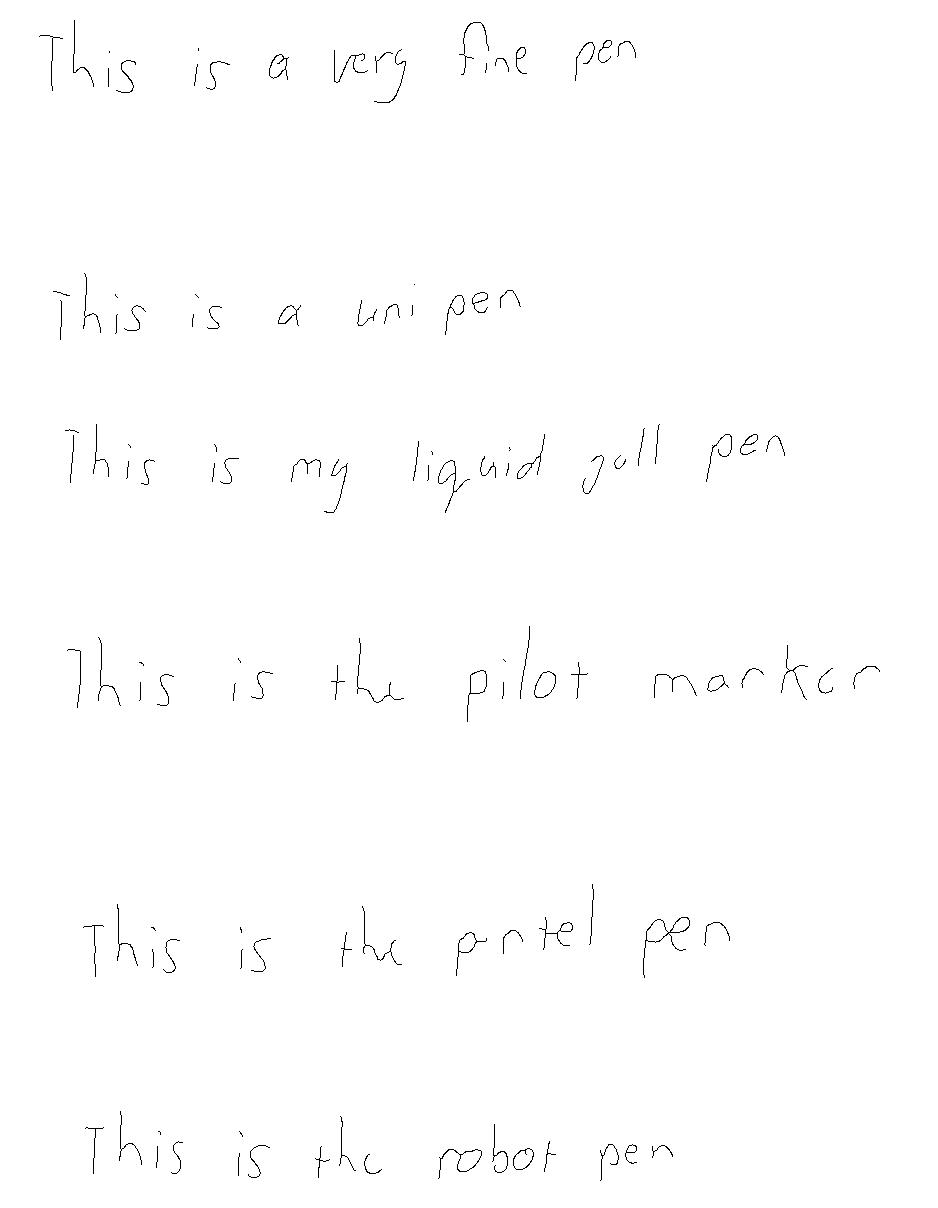 This is a very fine pen
This is a uni pen
This is my liquid gall pen
This is the pilot marker
This is the pentel pen
This is the robot pen